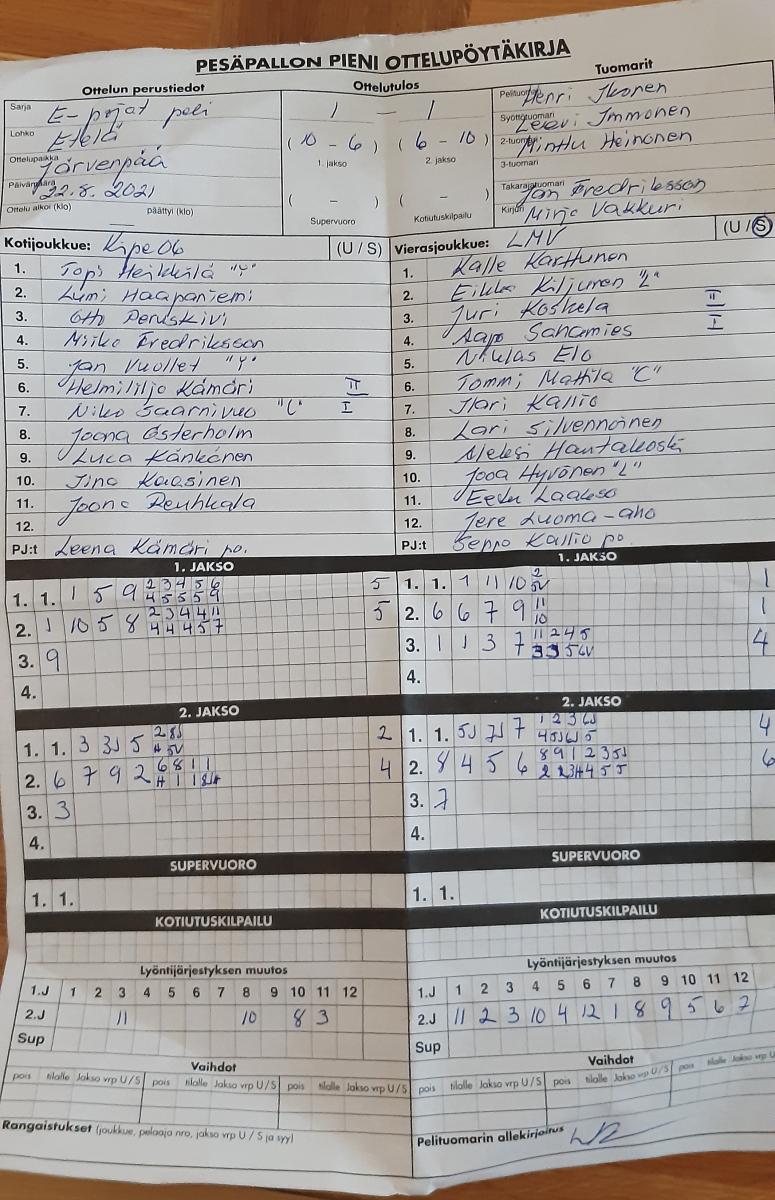 PESÄPALLON PIENI OTTELUPÖYTÄKIRJA
Ottelun perustiedot
Sarja E-pojat peli
Lohko Etelä
Ottelupaikka Järvenpää
Päivämäärä 22.8.2021
Ottelu alkoi (klo) päättyi (klo)
Ottelutulos
1 — 1
(10 - 6) (6 - 10)
1. jakso 2. jakso
( - ) ( - )
Supervuoro Kotiutuskilpailu
Tuomarit
Pelituomari Henri Ikonen
Syöttötuomari Leevi Immonen
2-tuomari Minttu Heinonen
3-tuomari
Takarajatuomari Jan Fredriksson
Kirjuri Mirja Vakkuri
Kotijoukkue: Kipe 06 (U / S)
1. Topi Heikkilä "Y"
2. Lumi Haapaniemi
3. Otto Peruskivi
4. Miiko Fredriksson
5. Jan Vuollet "Y"
6. Helmililja Kämäri II
7. Niko Saarnivuo "C" I
8. Joona Österholm
9. Luca Känkänen
10. Jino Kaasinen
11. Joona Reuhkala
12.
PJ:t Leena Kämäri po.
Vierasjoukkue: LMV (U / S)
1. Kalle Karttunen
2. Eikka Kiljunen "L"
3. Juri Koskela II
4. Aapo Sahamies I
5. Niklas Elo
6. Tommi Mattila "C"
7. Ilari Kallio
8. Lari Silvennoinen
9. Aleksi Hautakoski
10. Jooa Hyvönen "L"
11. Eetu Laakso
12. Jere Luoma-aho
PJ:t Seppo Kallio po.
1. JAKSO
1. 1. 1 5 9 2 3 4 5 6 5
4 5 5 5 9
2. 1 10 5 8 2 3 4 4 11 5
4 4 4 5 7
3. 9
4.
1. JAKSO
1. 1. 1 11 10 2 1
5V
2. 6 6 7 9 11 1
10
3. 1 1 3 7 11 2 4 5 4
3 3 5 6V
4.
2. JAKSO
1. 1. 3 3J 5 2 8J 2
4 5V
2. 6 7 9 2 6 8 1 1 4
4 1 1
3. 3
4.
2. JAKSO
1. 1. 5J 7J 7 1 2 3 6J 4
4 5J 6J 5
2. 8 4 5 6 8 9 1 2 3 5J 6
2 2 3 4 4 5 5
3. 7
4.
SUPERVUORO
1. 1.
SUPERVUORO
1. 1.
KOTIUTUSKILPAILU
KOTIUTUSKILPAILU
Lyöntijärjestyksen muutos
1.J 1 2 3 4 5 6 7 8 9 10 11 12
2.J 11 10 8 3
Sup
Lyöntijärjestyksen muutos
1.J 1 2 3 4 5 6 7 8 9 10 11 12
2.J 11 2 3 10 4 12 1 8 9 5 6 7
Sup
Vaihdot
pois tilalle Jakso vrp U / S pois tilalle Jakso vrp U / S pois tilalle Jakso vrp U / S
Vaihdot
pois tilalle Jakso vrp U / S pois tilalle Jakso vrp U / S pois tilalle Jakso vrp U
Rangaistukset (joukkue, pelaaja nro, jakso vrp U / S ja syy)
Pelituomarin allekirjoitus